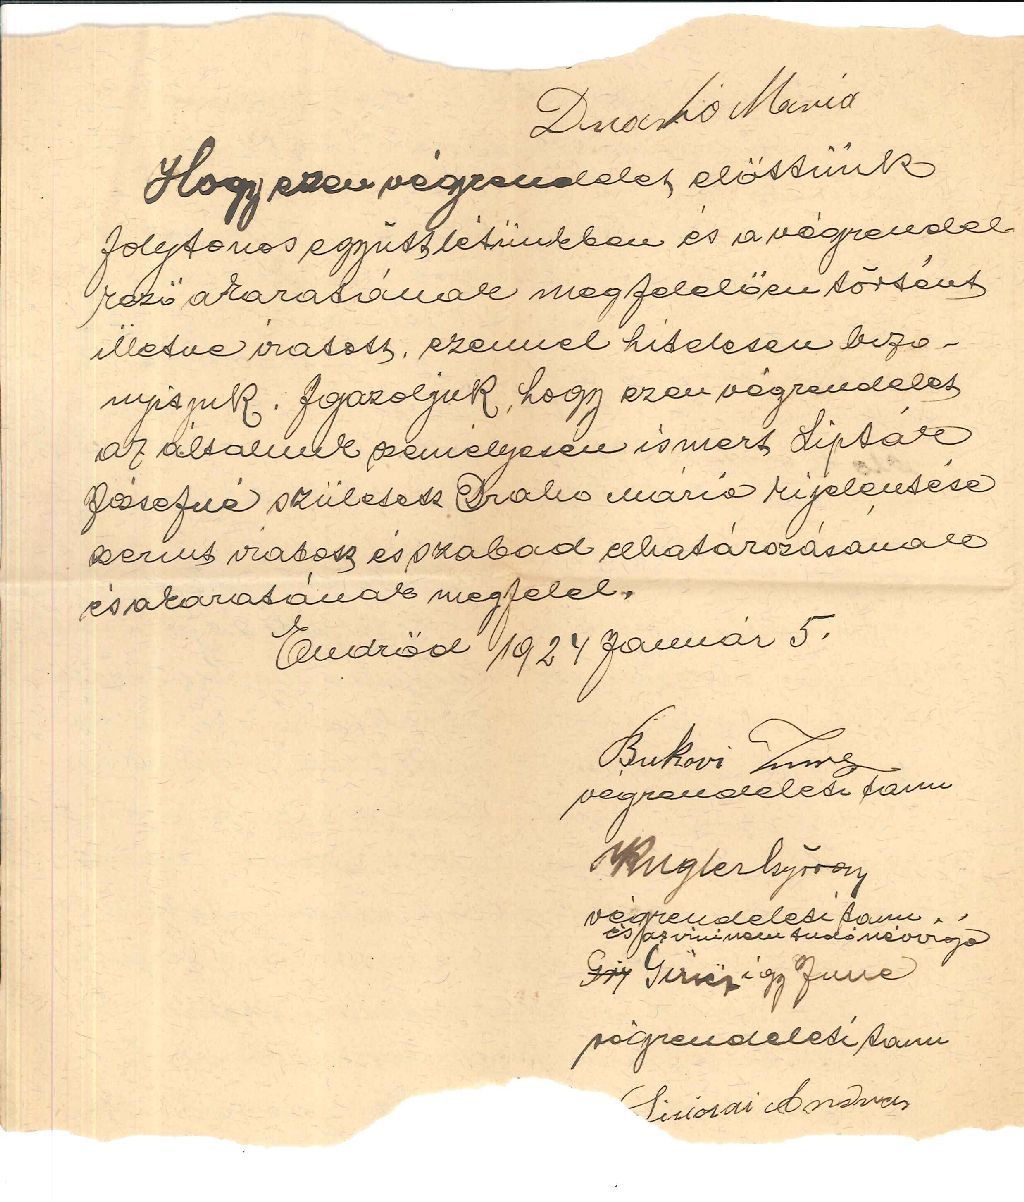 Drahó Mária
Hogy ezen végrendelet, előttünk
folytonos együttlétünkben és a végrendel
kező akaratának megfelelően történt
illetve iratott, ezennel hitelesen bizo-
nyitjuk. Igazoljuk, hogy ezen végrendelet
az általunk személyesen ismert Lipták
Józsefné született Draho mária kijelentése
szerint iratott és szabad elhatározásának
és akaratának megfelel.
Endrőd 1924 Január 5.
Bukovi Imre
végrendeleti tanu
Kugler György
végrendeleti tanu
és az irni nem tudó névirója
Imre
végrendeleti tanu
András